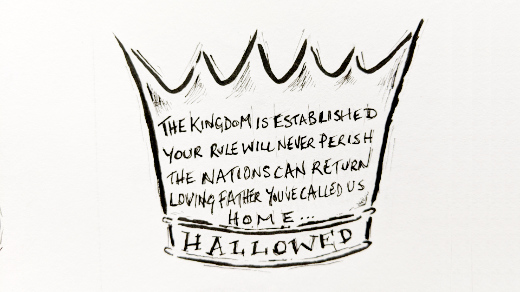 THE KINGDOM IS ESTABLISHED
YOUR RULE WILL NEVER PERISH
THE NATIONS CAN RETURN
LOVING FATHER YOU'VE CALLED US
HOME...
HALLOWED